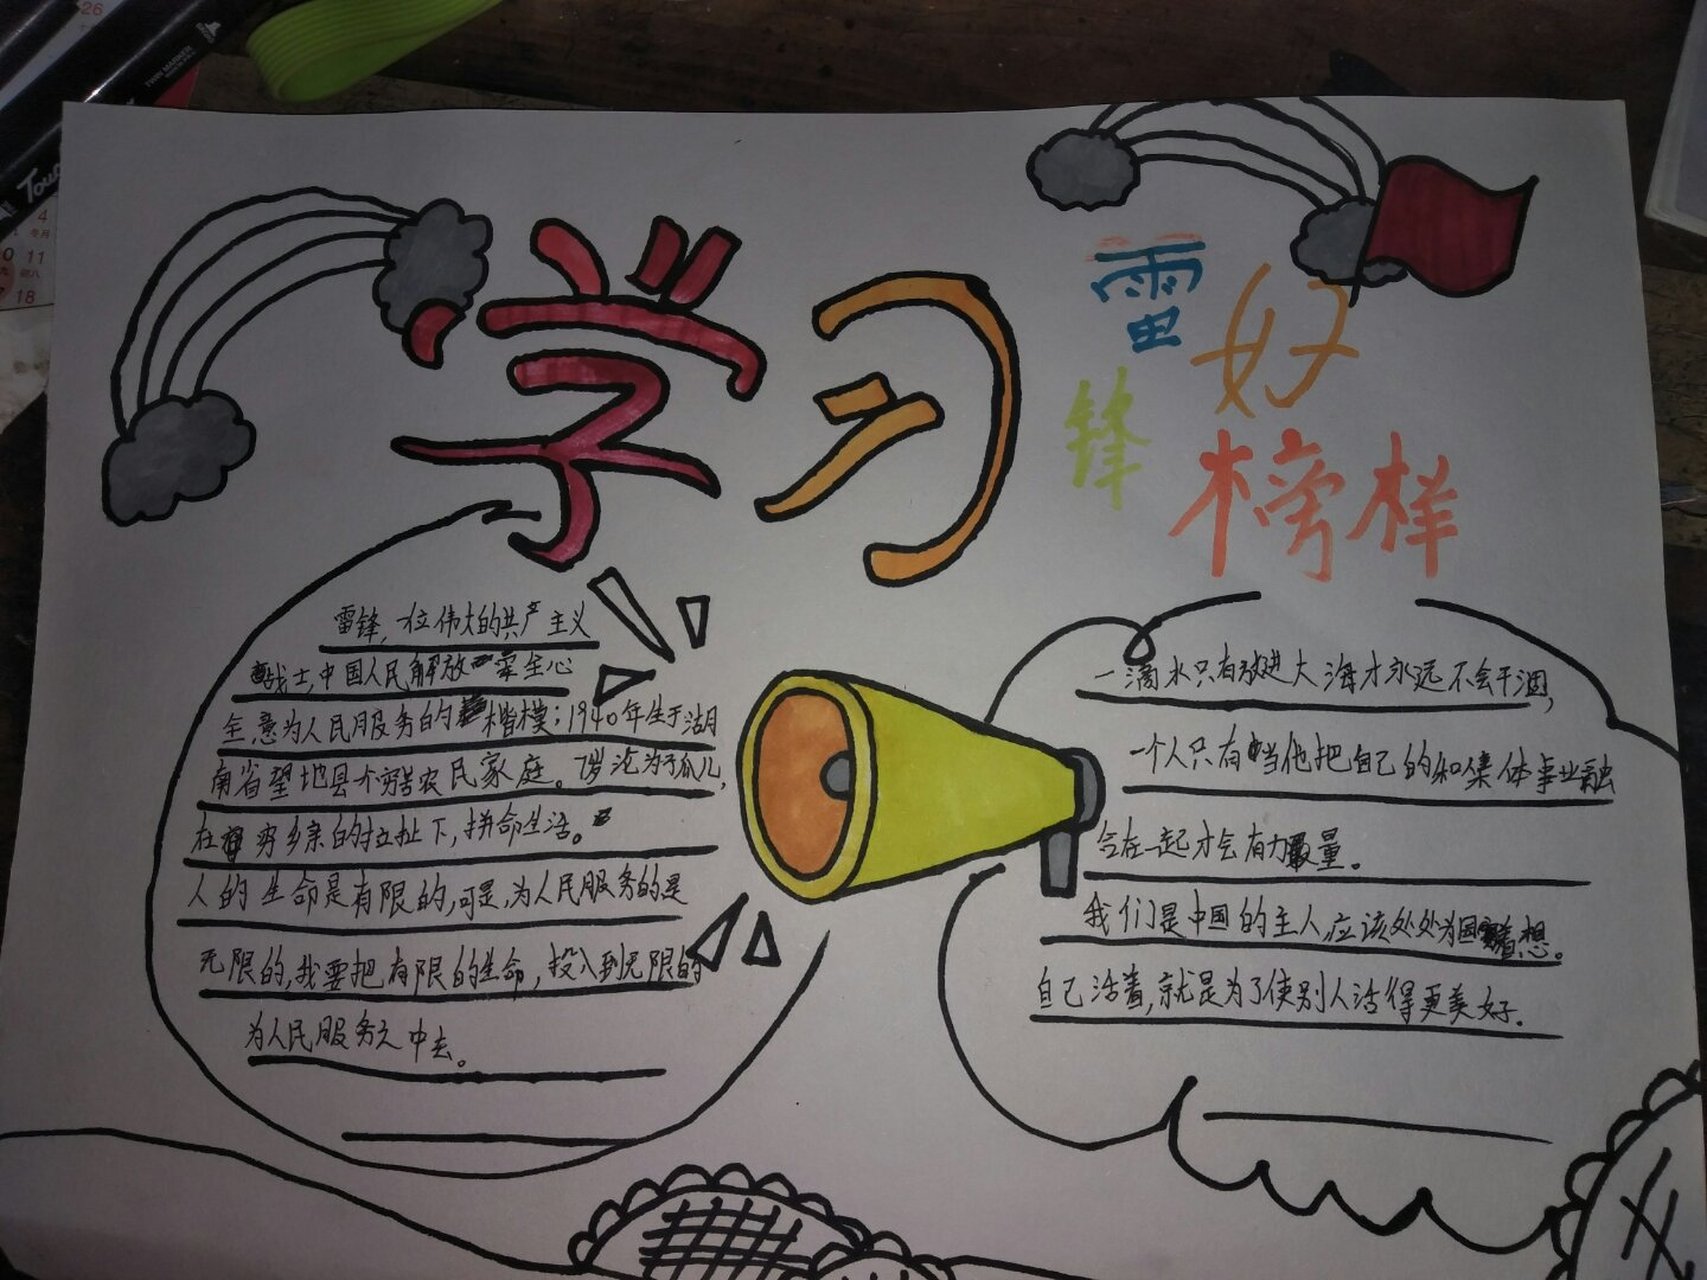 学习
雷锋
好
榜样
雷锋,一位伟大的共产主义
战士,中国人民解放军全心
全意为人民服务的楷模;1940年生于湖
南省望地县个穷苦农民家庭。7岁沦为孤儿,
在穷乡亲的拉扯下,拼命生活。
人的生命是有限的,可是,为人民服务的是
无限的,我要把有限的生命,投入到无限的
为人民服务之中去。
一滴水只有放进大海才永远不会干涸,
一个人只有当他把自己的和集体事业融
合在一起才会有力量。
我们是中国的主人,应该处处为国着想。
自己活着,就是为了使别人活得更美好.
26
4
冬月
11
初八
18
TWIN MARKER